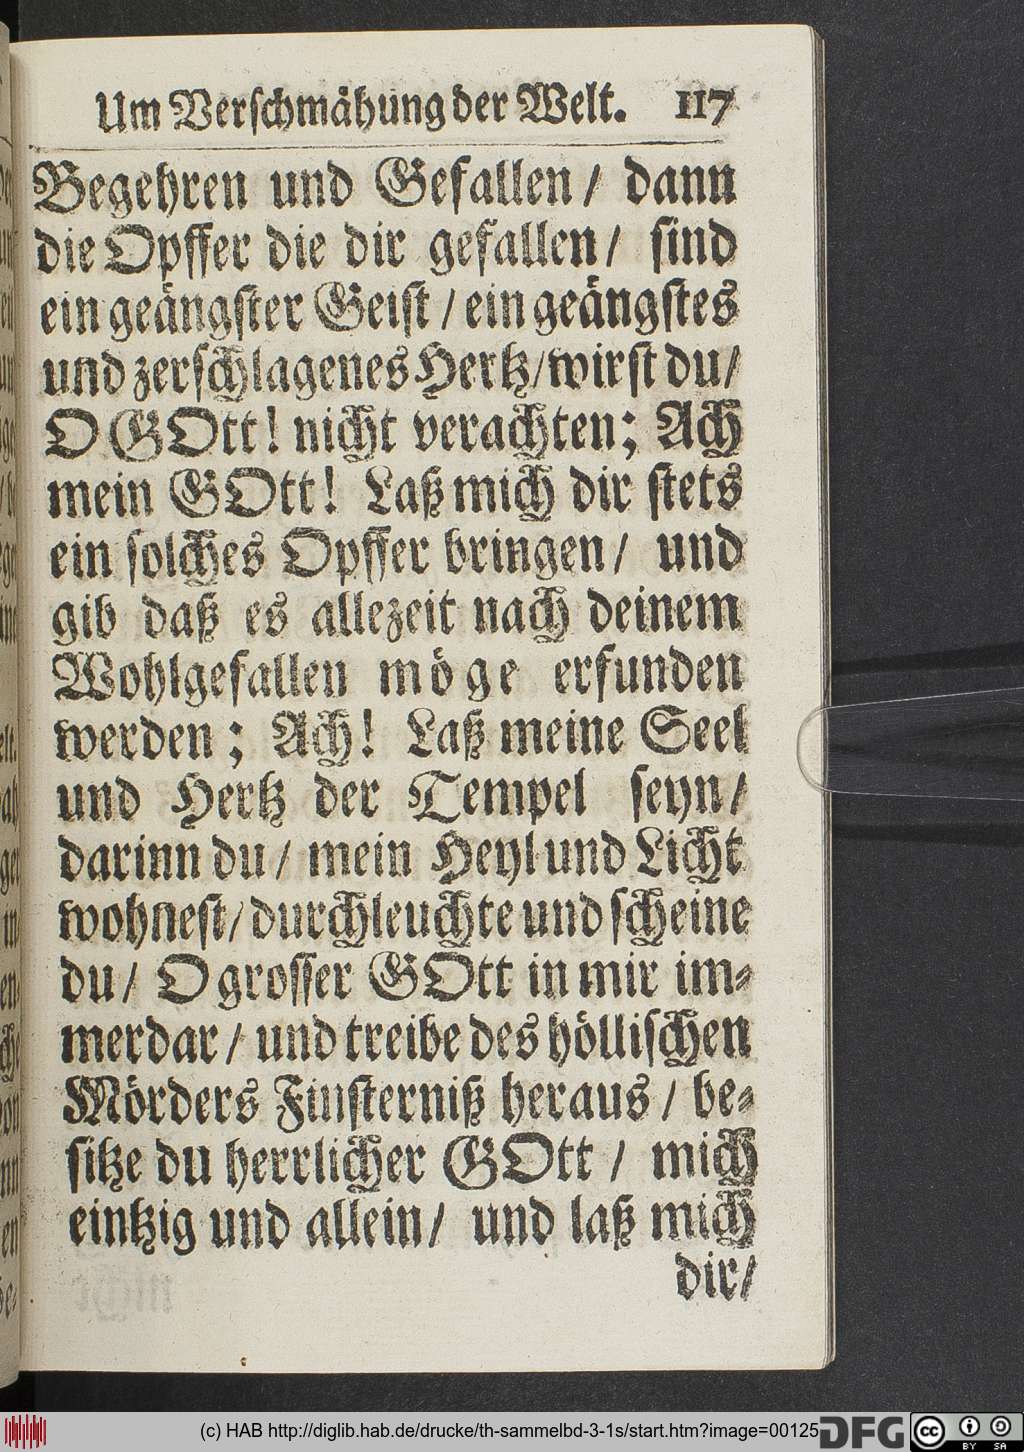 Um Verschmähung der Welt. 117
Begehren und Gefallen / dann
die Opffer die dir gefallen / sind
ein geängster Geist / ein geängstes
und zerschlagenes Hertz / wirst du /
O GOtt! nicht verachten; Ach
mein GOtt! Laß mich dir stets
ein solches Opffer bringen / und
gib daß es allezeit nach deinem
Wohlgefallen möge erfunden
werden; Ach! Laß meine Seel
und Hertz der Tempel seyn /
darinn du / mein Heyl und Licht
wohnest / durchleuchte und scheine
du / O grosser GOtt in mir im-
merdar / und treibe des höllischen
Mörders Finsterniß heraus / be-
sitze du herrlicher GOtt / mich
eintzig und allein / und laß mich
dir /
(c) HAB http://diglib.hab.de/drucke/th-sammelbd-3-1s/start.htm?image=00125
DFG
cc BY SA